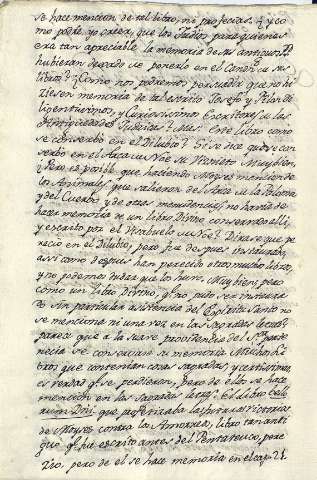 se hace mencion de tal libro, ni profecias. ¿y co
mo podre yo creer, que los Judios para quienes
era tan apreciable la memoria de sus antiguos PP.
hubieran dexado de ponerlo en el Canon de sus
libros? ¿Como nos podremos persuadir que no hi
ziesen memoria de tal escrito Josefo y Filon di
ligentissimos, y Curiosissimos Escritores de las
Antiguedades Judaicas? Mas. Este libro como
se conservó en el Diluvio? Si se dice que se con
servó en el Arca de Noe su Visnieto Muy bien
¿Pero es posible que haciendo Moyses mencion de
los Animales que salieron del Arca de la Paloma
y del Cuervo y de otras menudencias, no havia de
hacer memoria de un libro Divino conservado alli,
y escrito por el Bisabuelo de Noe? Dirase que pe
reció en el Diluvio, pero fue despues instaurado,
assi como despues han perecido otros muchos libros,
y no podemos dudar que los huvo. Muy bien; pero
como un libro Divino, q.e no pudo ser instaura
do sin particular asistencia del Espiritu Santo no
se menciona ni una vez en las Sagradas letras?
parece que a la suave providencia del S.or perte
necia se conservase su memoria. Muchos li
bros que contenian cosas sagradas, y certissimas
es verdad q.e se perdieron, pero de ellos se hace
mencion en las Sagradas letras. El libro
que profetizaba las futuras victorias
de Moyses contra los Amorreos, libro tan anti
guo q.e fue escrito antes del Pentateuco, pere
cio, pero de el se hace memoria en el cap. 21.